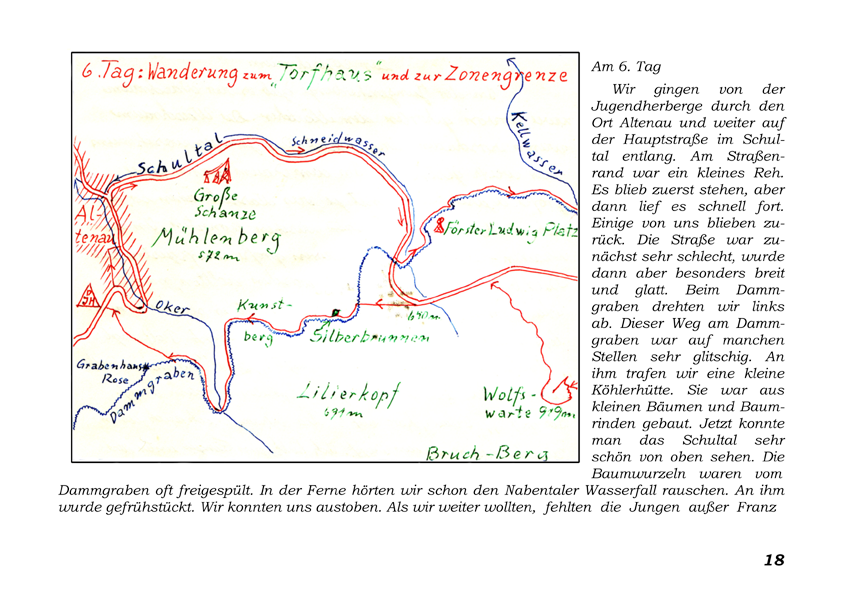 6. Tag: Wanderung zum „Torfhaus" und zur Zonengrenze
Kellwasser
Schultal
Schneidwasser
Große
Schanze
Al-
tenau
Mühlenberg
572 m
Förster Ludwig Platz
JH
Oker
Kunst-
berg
Silberbrunnen
640 m
Grabenhaus
Rose
Dammgraben
Lilierkopf
Wolfs-
warte 919 m
Bruch-Berg
Am 6. Tag
Wir gingen von der
Jugendherberge durch den
Ort Altenau und weiter auf
der Hauptstraße im Schul-
tal entlang. Am Straßen-
rand war ein kleines Reh.
Es blieb zuerst stehen, aber
dann lief es schnell fort.
Einige von uns blieben zu-
rück. Die Straße war zu-
nächst sehr schlecht, wurde
dann aber besonders breit
und glatt. Beim Damm-
graben drehten wir links
ab. Dieser Weg am Damm-
graben war auf manchen
Stellen sehr glitschig. An
ihm trafen wir eine kleine
Köhlerhütte. Sie war aus
kleinen Bäumen und Baum-
rinden gebaut. Jetzt konnte
man das Schultal sehr
schön von oben sehen. Die
Baumwurzeln waren vom
Dammgraben oft freigespült. In der Ferne hörten wir schon den Nabentaler Wasserfall rauschen. An ihm
wurde gefrühstückt. Wir konnten uns austoben. Als wir weiter wollten, fehlten die Jungen außer Franz
18